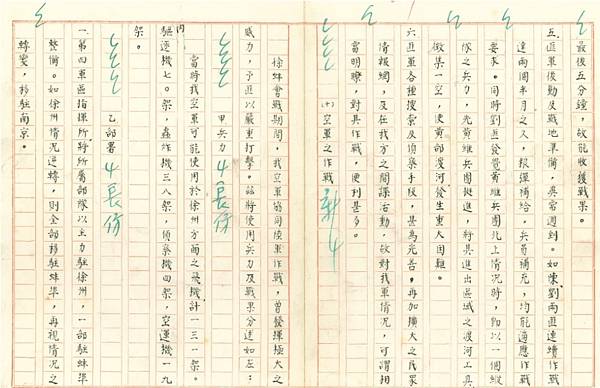 最後五分鐘，故能收獲戰果。
五、匪軍後勤及戰地準備，異常週到。如陳劉兩匪連續作戰
達兩個半月之久，粮彈補給，兵員補充，均能適應作戰
要求。同時劉匪發覺黃維兵團北上情況時，即以一個縱
隊之兵力，先黃維兵團挺進，將其進出區域之渡河工具
徵集一空，使黃部渡河發生重大困難。
六、匪軍各種搜索及偵察手段，甚為完善，再加擴大之民眾
情報網，及在我方之間諜活動，故對我軍情況，可謂相
當明瞭，對其作戰，便利甚多。
(十)空軍之作戰
徐蚌會戰期間，我空軍協同陸軍作戰，曾發揮極大之
威力，予匪以嚴重打擊。茲將使用兵力及戰果分述如左：
甲、兵力 4長仿
當時我空軍可能使用於徐州方面之飛機計一三一架。
內驅逐機七〇架，轟炸機三八架，偵察機四架，空運機一九
架。
乙、部署 4長仿
一、第四軍區指揮所將所屬部隊以主力駐徐州，一部駐蚌埠
整備。如徐州情況逆轉，則全部移駐蚌埠，再視情況之
轉變，移駐南京。